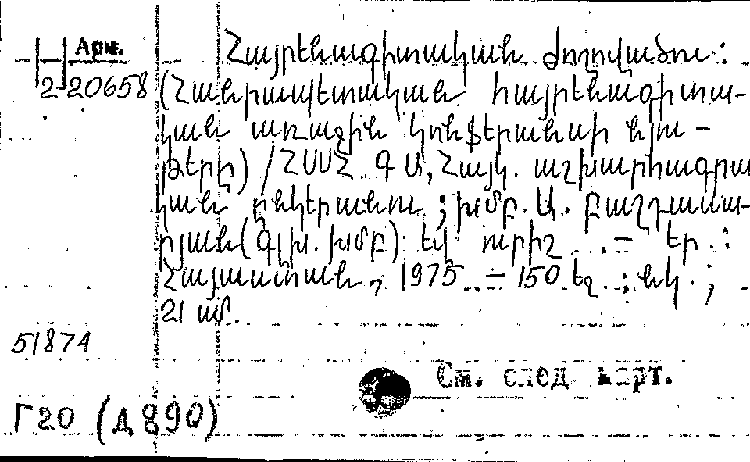 Арм.
2-20658
Հայրենագիտական ժողովածու :
(Հանրապետական հայրենագիտա-
կան առաջին կոնֆերանսի նյու-
թերի) / ՀՍՍՀ ԳԱ, Հայկ. աշխարհագրա
կան ընկերանու ; խմբ. Ա. Բաղդասա-
րյան (գլխ. խմբ) եվ ուրիշ. – Եր. :
Հայաստան, 1975. – 150 էջ. : նկ. ;
21 սմ.
51874
См. след карт.
Г20 (Д890)